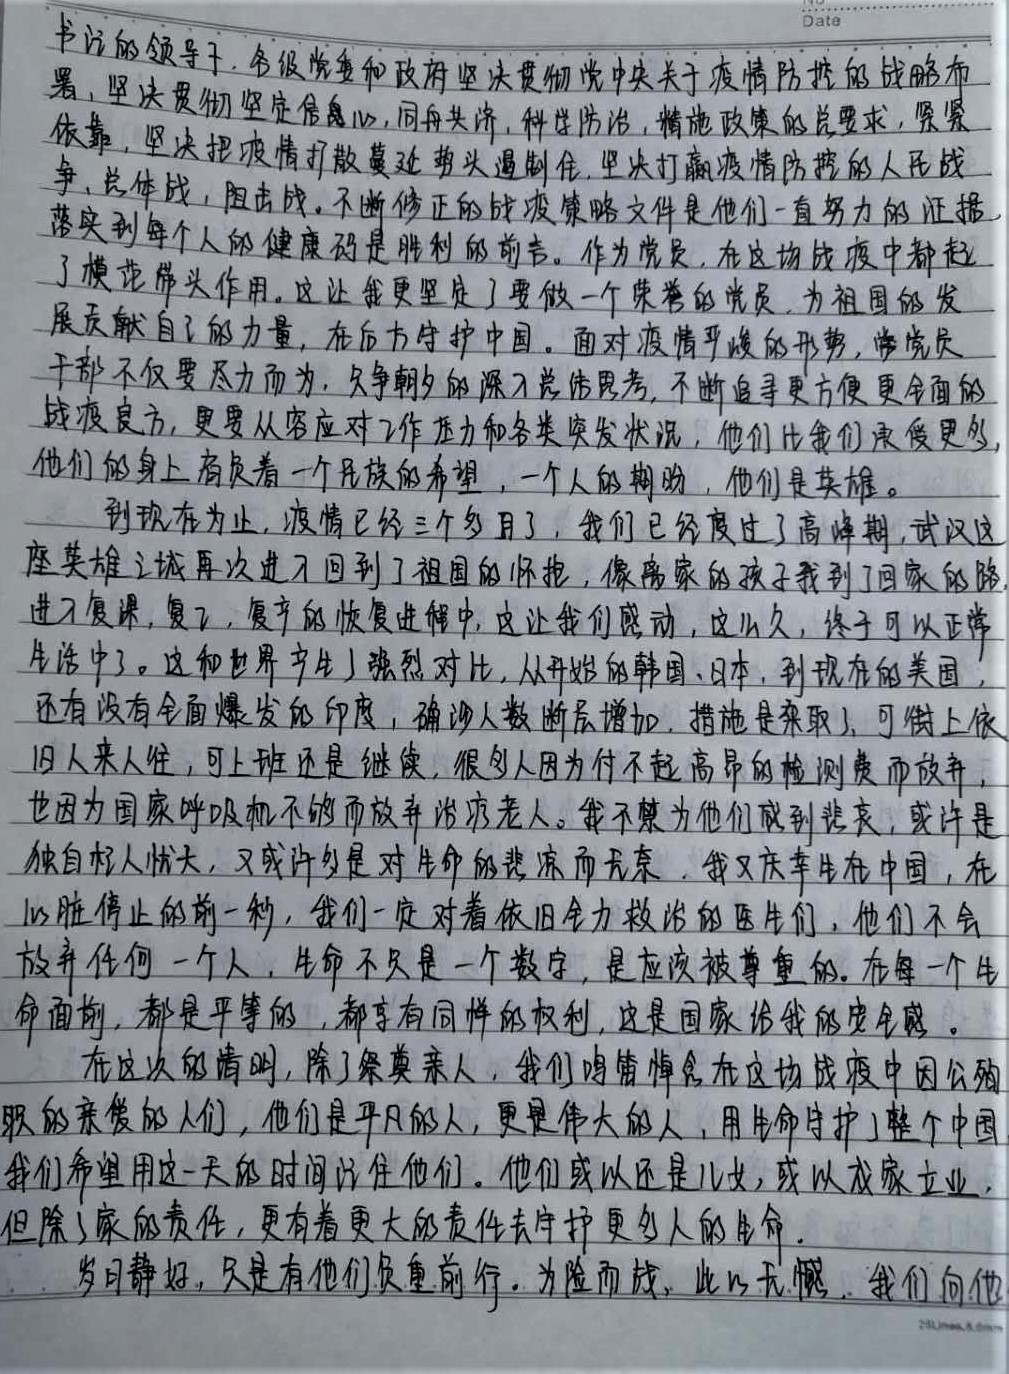 Date
书记的领导下，各级党委和政府坚决贯彻党中央关于疫情防控的战略布
署，坚决贯彻坚定信息心，同舟共济，科学防治，精施政策的总要求，紧紧
依靠，坚决把疫情扩散蔓延势头遏制住，坚决打赢疫情防控的人民战
争、总体战，阻击战。不断修正的战疫策略文件是他们一直努力的证据，
落实到每个人的健康码是胜利的前言。作为党员，在这场战疫中都起
了模范带头作用。这让我更坚定了要做一个荣誉的党员，为祖国的发
展贡献自己的力量，在后方守护中国。面对疫情严峻的形势，党员
干部不仅要尽力而为，只争朝夕的深入总结思考，不断追寻更方便更全面的
战疫良方，更要从容应对工作压力和各类突发状况，他们比我们承受更多，
他们的身上肩负着一个民族的希望，一个人的期盼，他们是英雄。
到现在为止，疫情已经三个多月了，我们已经度过了高峰期，武汉这
座英雄之城再次进入回到了祖国的怀抱，像离家的孩子找到了回家的路，
进入复课，复工，复产的恢复进程中，这让我们感动，这么久，终于可以正常
生活中了。这和世界产生了强烈对比，从开始的韩国、日本，到现在的美国，
还有没有全面爆发的印度，确诊人数断层增加，措施是采取了，可街上依
旧人来人往，可上班还是继续，很多人因为付不起高昂的检测费而放弃，
也因为国家呼吸机不够而放弃治疗老人。我不禁为他们感到悲哀，或许是
独自杞人忧天，又或许多是对生命的悲凉而无奈，我又庆幸生在中国，在
心脏停止的前一秒，我们一定对着依旧全力救治的医生们，他们不会
放弃任何一个人，生命不只是一个数字，是应该被尊重的。在每一个生
命面前，都是平等的，都享有同样的权利，这是国家给我的安全感。
在这次的清明，除了祭奠亲人，我们鸣笛悼念在这场战疫中因公殉
职的亲爱的人们，他们是平凡的人，更是伟大的人，用生命守护了整个中国
我们希望用这一天的时间记住他们。他们或以还是儿女，或以成家立业，
但除了家的责任，更有着更大的责任去守护更多人的生命。
岁月静好，只是有他们负重前行。为险而战，此心无憾，我们向他